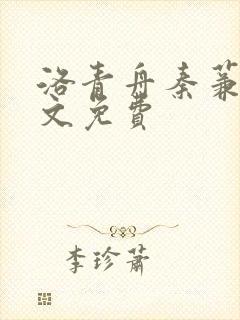 洛青舟秦蒹
文免費
李珍蕭